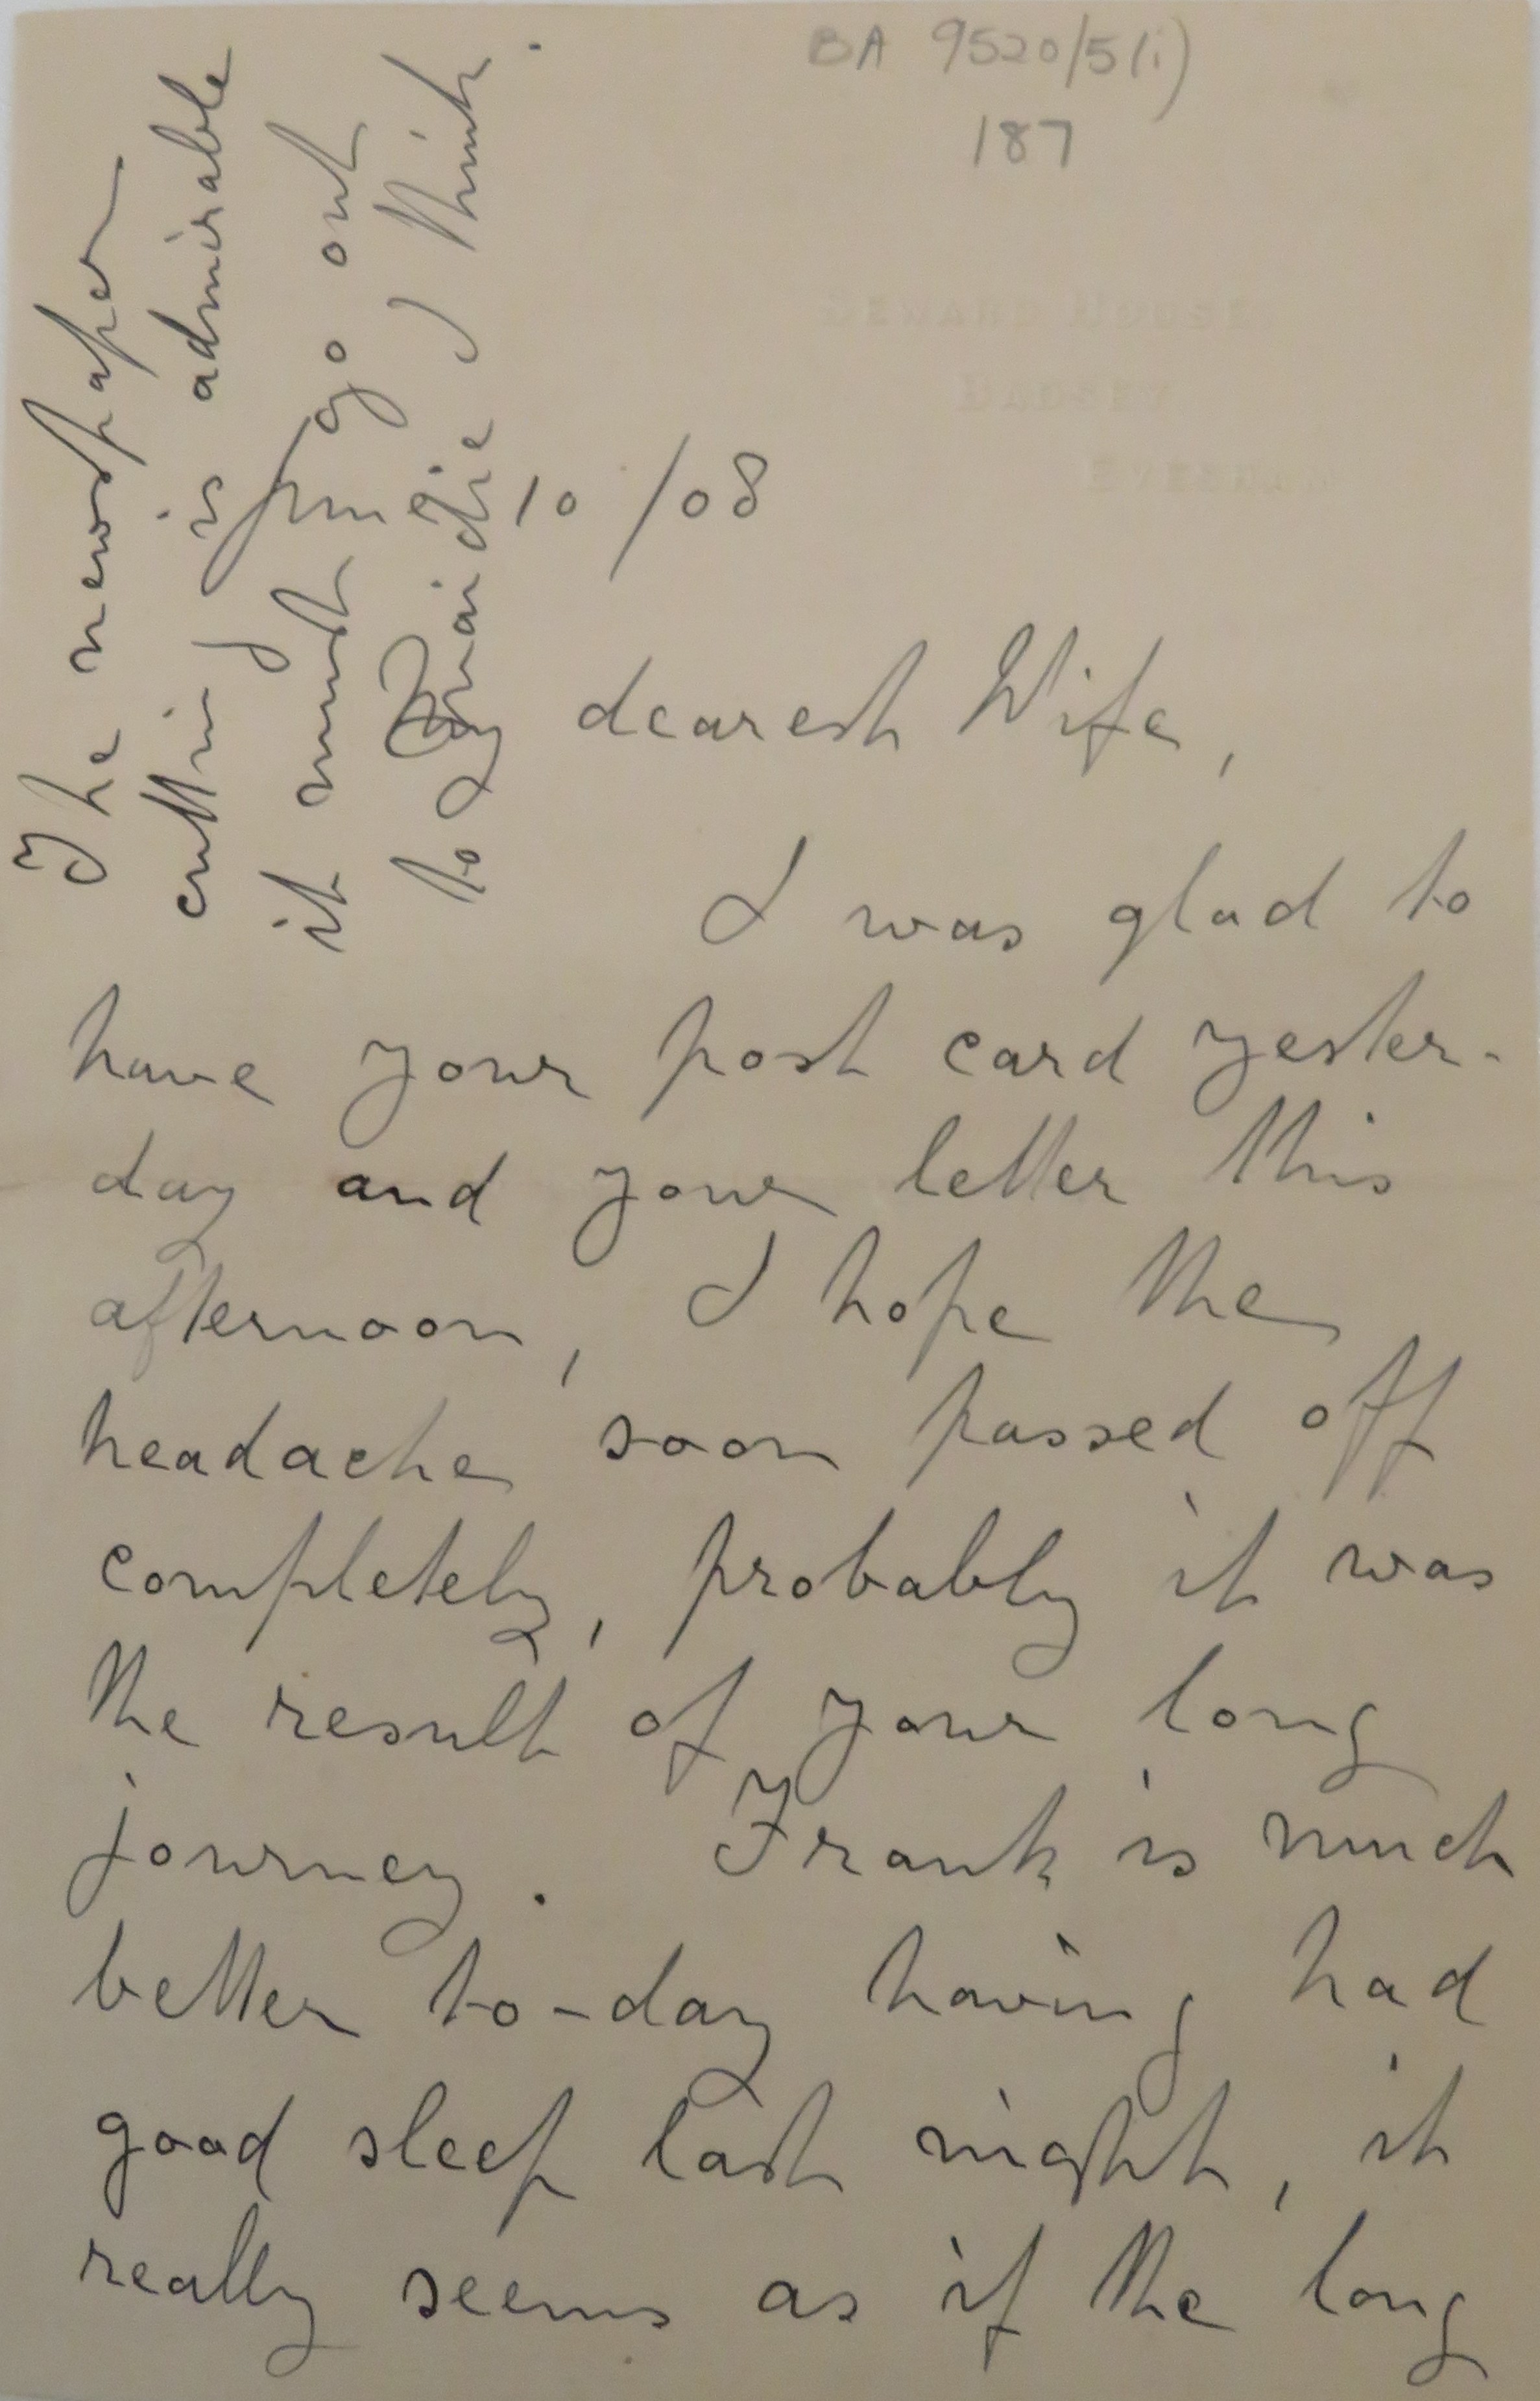 BA 9520/5(i)
187
June 10/08
My dearest Wife,
I was glad to
have your post card yester-
day and your letter this
afternoon, I hope the
headache soon passed off
completely, probably it was
the result of your long
journey. Frank is much
better to-day having had
good sleep last night, it
really seems as if the long
The newspaper
cutting is admirable
it must go out
to Maidie I think.